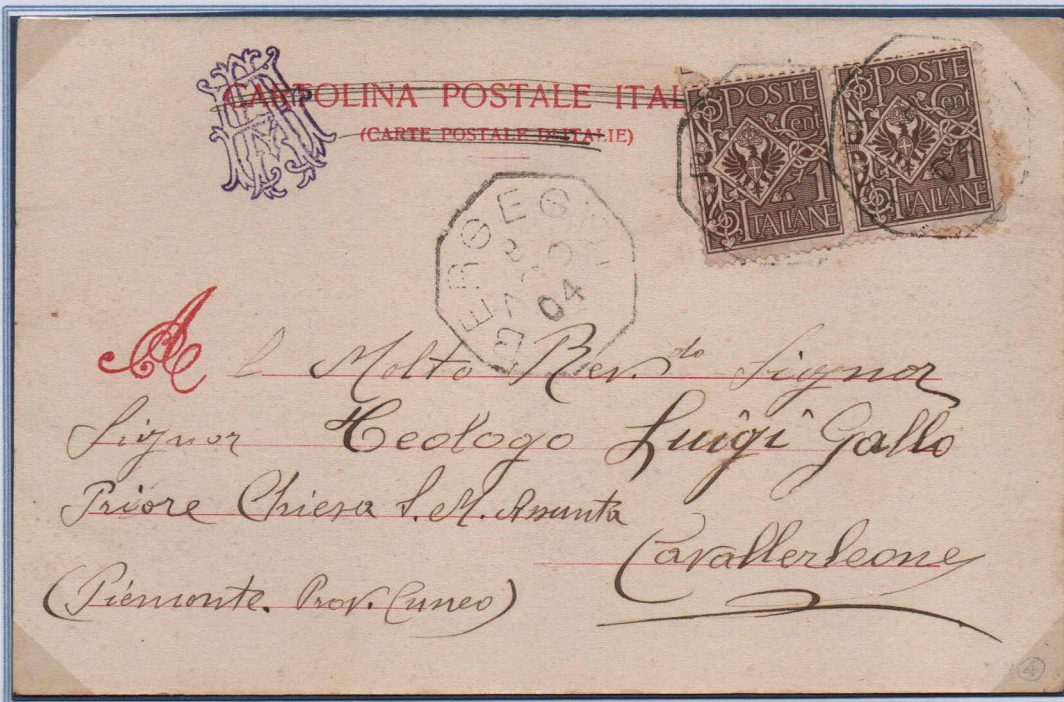 CARTOLINA POSTALE ITAL
(CARTE POSTALE D'ITALIE)
POSTE
Cent
1
ITALIANE
POSTE
Cent
1
ITALIANE
BERGEGGI
AGO
04
Al Molto Rev.do Signor
Signor Teologo Luigi Gallo
Priore Chiesa S. M. Assunta
Cavallerleone
(Piemonte. Prov. Cuneo)
4